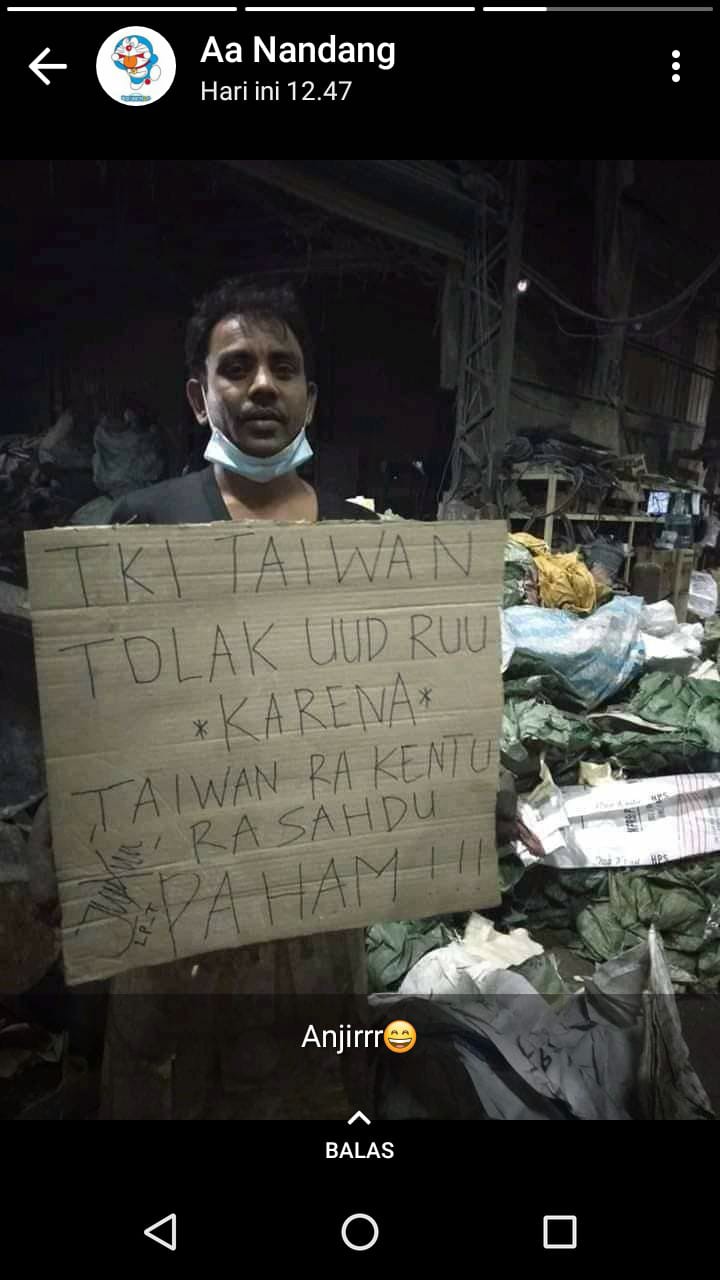 Aa Nandang
Hari ini 12.47
TKI TAIWAN
TOLAK UUD RUU
*KARENA*
TAIWAN RA KENTU
RA SAHDU
PAHAM!!!
LP-T
HPS
HPS
Anjirrr😄
BALAS